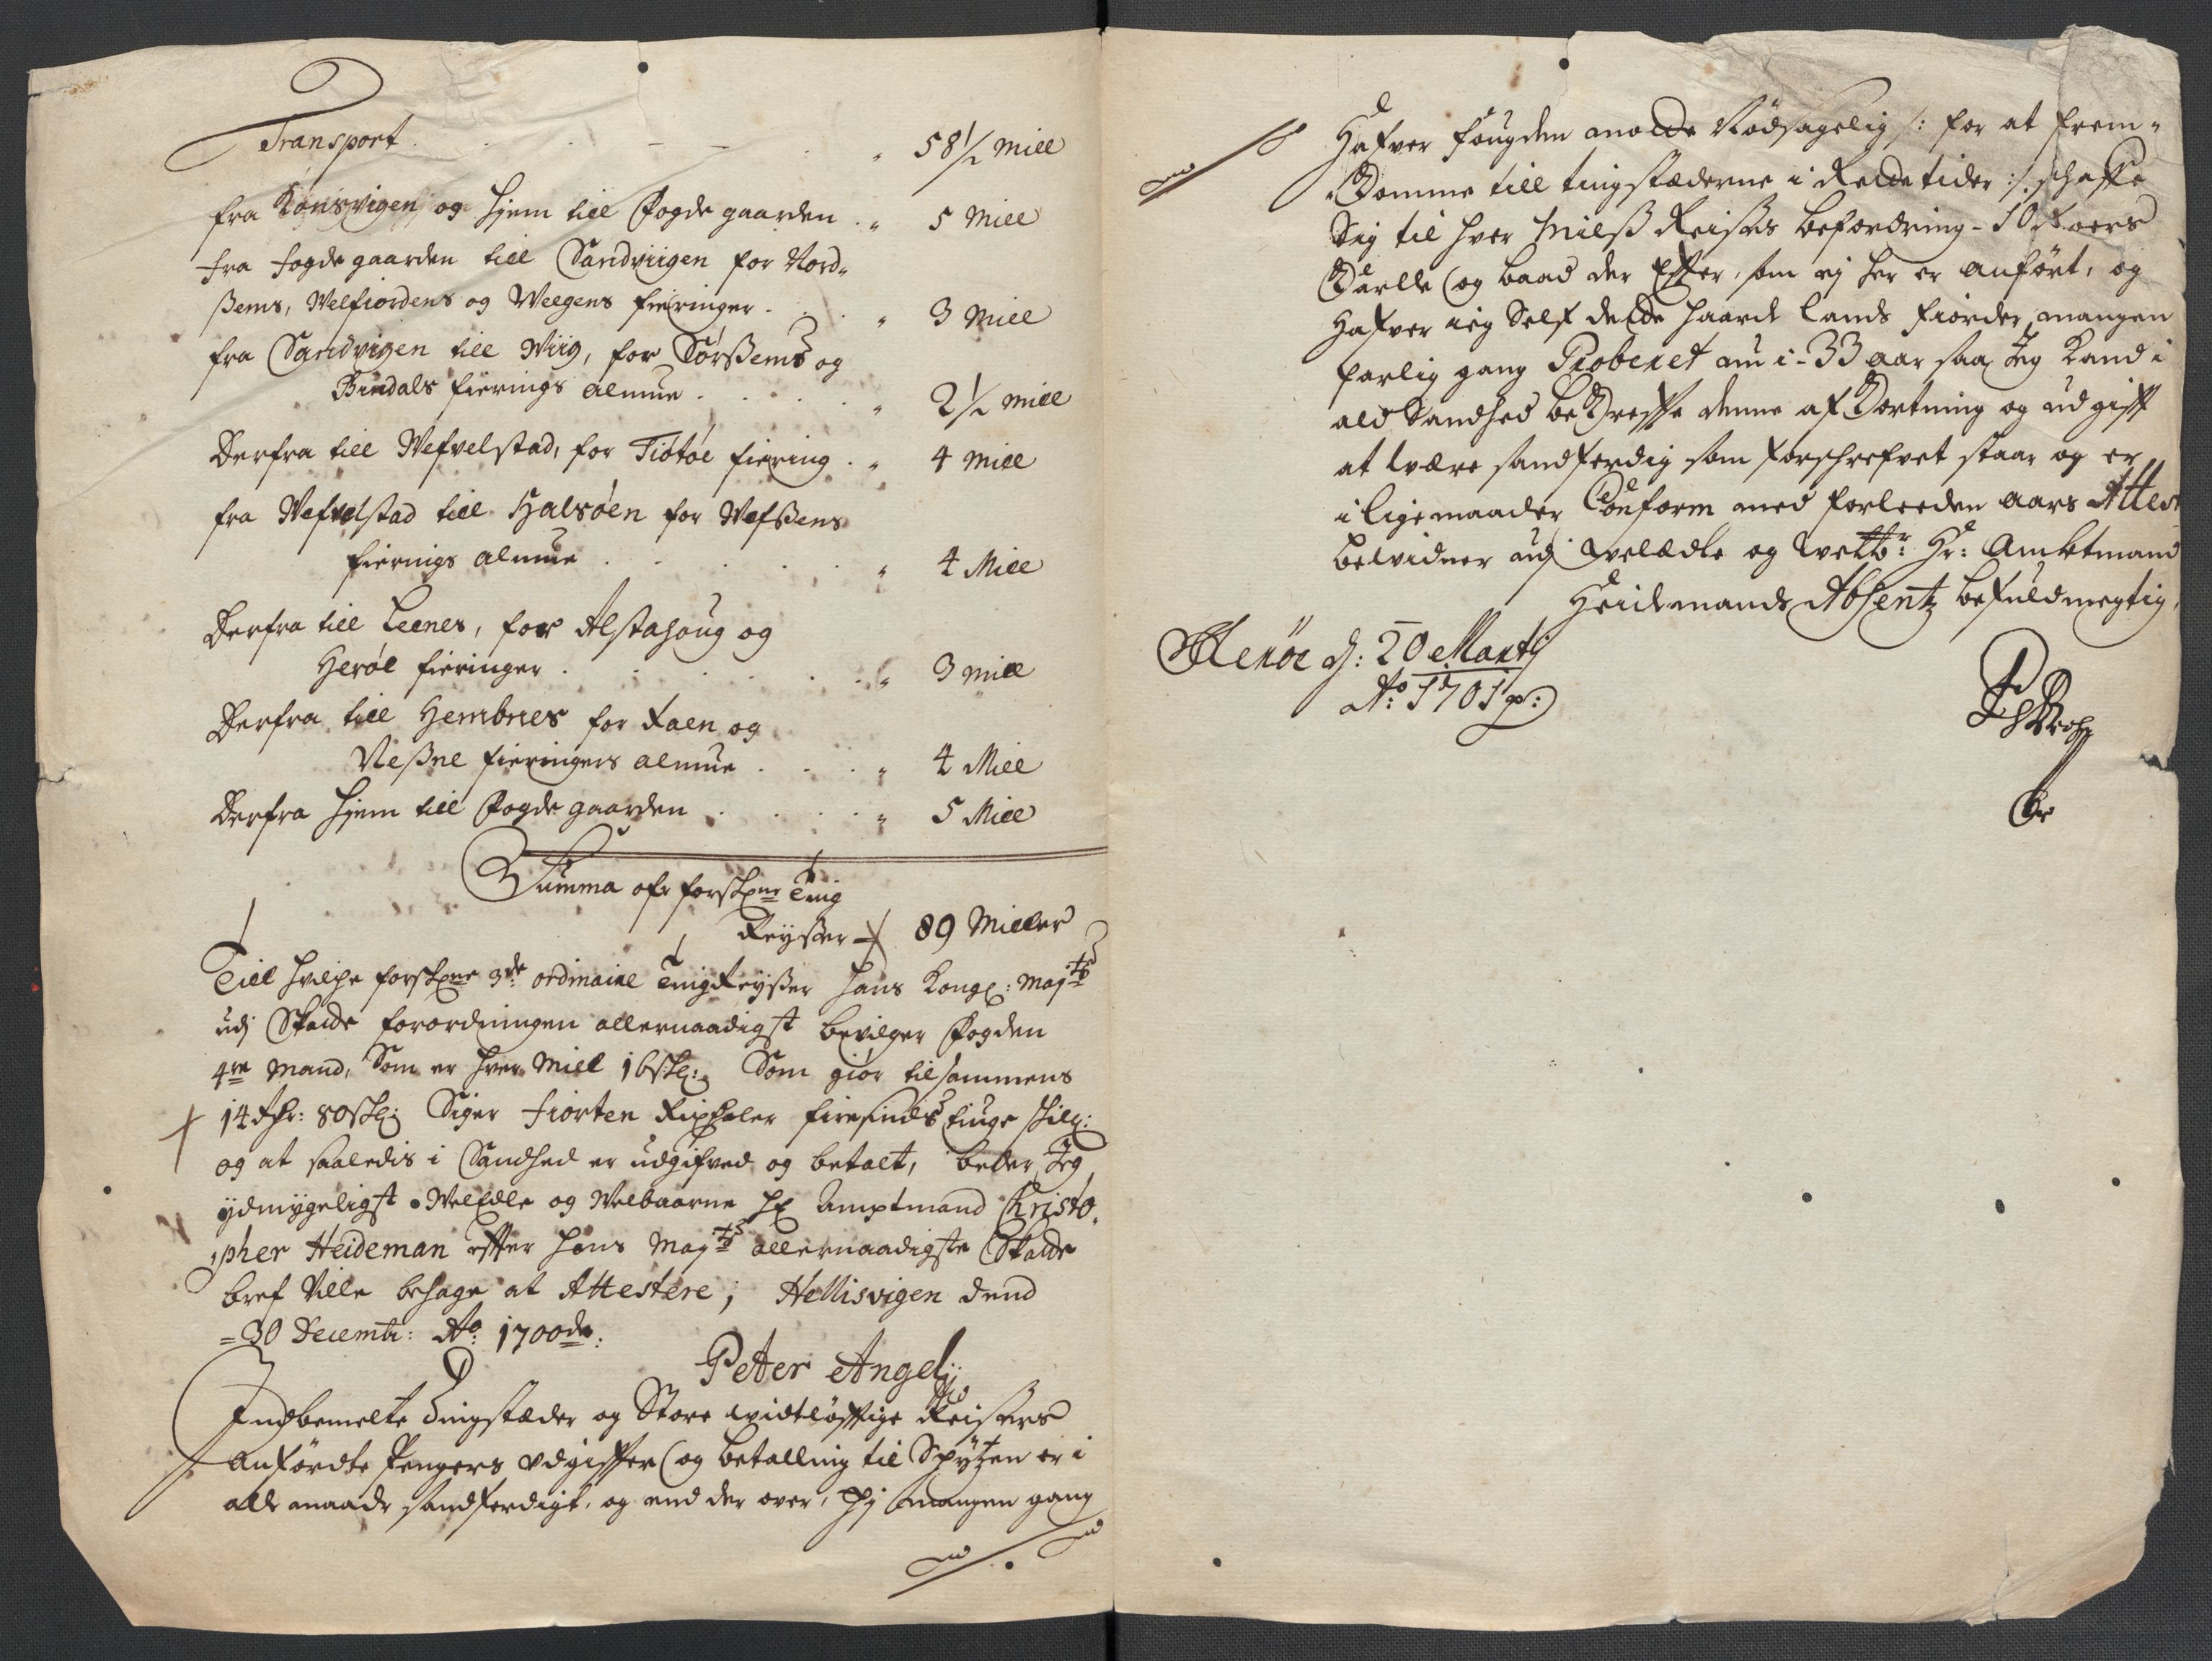 Transport . . . „ 58½ Miell
fra Rønsvigen og hiem till Fogde gaarden . „ 5 Miell
Fra Fogde gaarden till Sandviigen for Nord-
ßems, Welfiordens og Weegens fieringer . . „ 3 Miell
fra Sandvigen till Wiig, for Sørßems og
Bindals fierings almue . . . . „ 2½ Miell
Derfra till Wefvelstad, for Tiøtøe fiering . „ 4 Miell
fra Wefvelstad till Halsøen for Wefßens
fierings almue . . . . „ 4 Miell
Derfra till Leenes, for Alstahoug og
Herøe fieringer . . . . „ 3 Miell
Derfra till Hembnes for Raen og
Neßne fieringers almue . . . „ 4 Miell
Derfra hiem till Fogde gaarden . . . „ 5 Miell
Summa ofr forskrne Ting
Reyßer 89 Mieller
Till hvilche forskrne 3de ordinaire Ting Reyßer hans Kongl: Mayts
udj Skatte forordningen allernaadigst bevilger Fogden
4re Mand, Som er hver Miell 16 skl: Som giør tilsammens
14 Rdr: 80 skl: Siger fiorten Rixdaler firesinds tiuge skill:
og at saaledis i Sandhed er udgifved og betalt, beder Jeg
ydmygeligst WelEdle og Welbaarne Hr Amptmand Christo-
pher Heideman efter hans Mayts allernaadigste Skatte
bref Ville behage at Attestere; Hellisvigen dend
30 Decembr: Ao 1700de:
Peter Angelj
Indbemelte Tingstæder og Store widtløfftige Reißers
Anførdte Pengers Udgiffter og betalling til Skydzen er i
alle maade sandferdigt, og end der over, hj mangen gang
Hafver fougden maatte Nødsagelig /: for at frem-
Komme till tingstæderne i Rette tider :/ schaffe
Sig til hver Miels Reises befordring - 10 Roers
Karlle og baad der Effter, som ej her er anført, og
Hafver ieg Self dette haarde lands fiorder mangen
farlig gang Proberet nu i - 33 aar saa Jeg Kand i
ald Sandhed beKreffte denne afKortning og udgifft
at were sandferdig som forschrefvet staar og er
i lige maader Conform med forleeden aars Attest
belvidner udj welædle og welbr: Hr: Ambtmand
Heidemands Absentz befuldmegtig,
Alenøe d: 20 Martj
Ao: 1701 p: